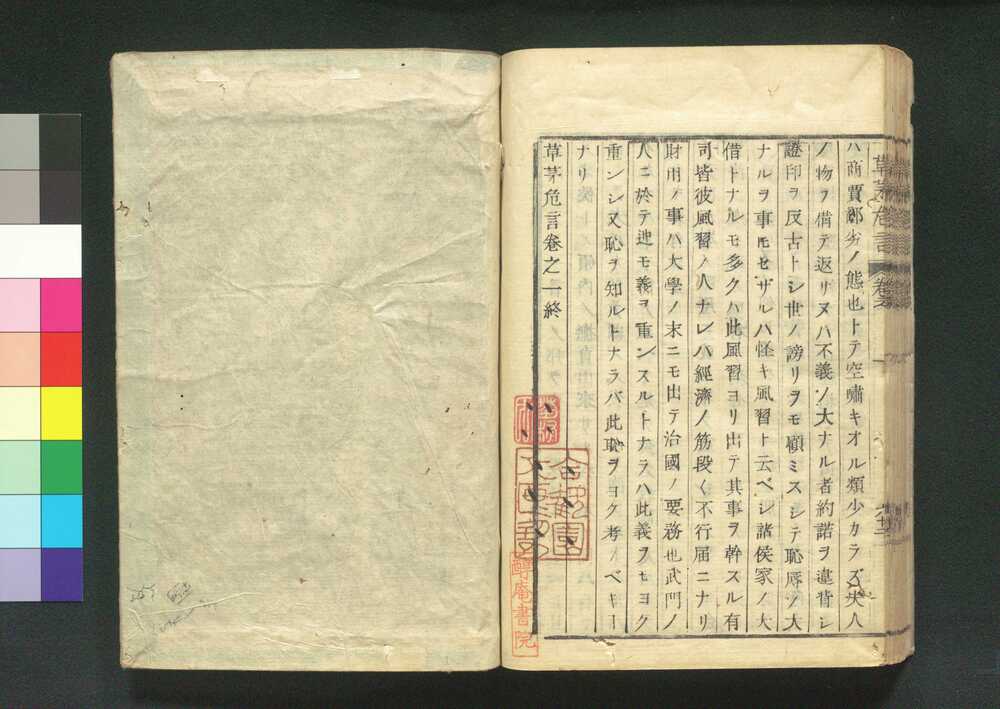 ハ商賈郎劣ノ態也トテ空嘯キオル類少カラズ夫人
ノ物ヲ借テ返リヌハ不義ノ大ナル者約諾ヲ違背シ
證印ヲ反古トシ世ノ謗リヲモ顧ミスシテ恥辱ノ大
ナルヲ事モセザルハ怪キ風習ト云ベシ諸侯家ノ大
借トナルモ多クハ此風習ヨリ出テ其事ヲ幹スル有
司皆彼風習ノ人ナレハ經濟ノ筋段〱不行届ニナリ
財用ノ事ハ大學ノ末ニモ出テ治國ノ要務也武門ノ
人ニ於テ迚モ義ヲ重ンスルトナラハ此義ヲモヨク
重ンシ又恥ヲ知ルトナラバ此恥ヲヨク考ノベキー
ナリ
草茅危言卷之一終
草茅危言 卷之一
合歡園
文匣
鱘庵書院